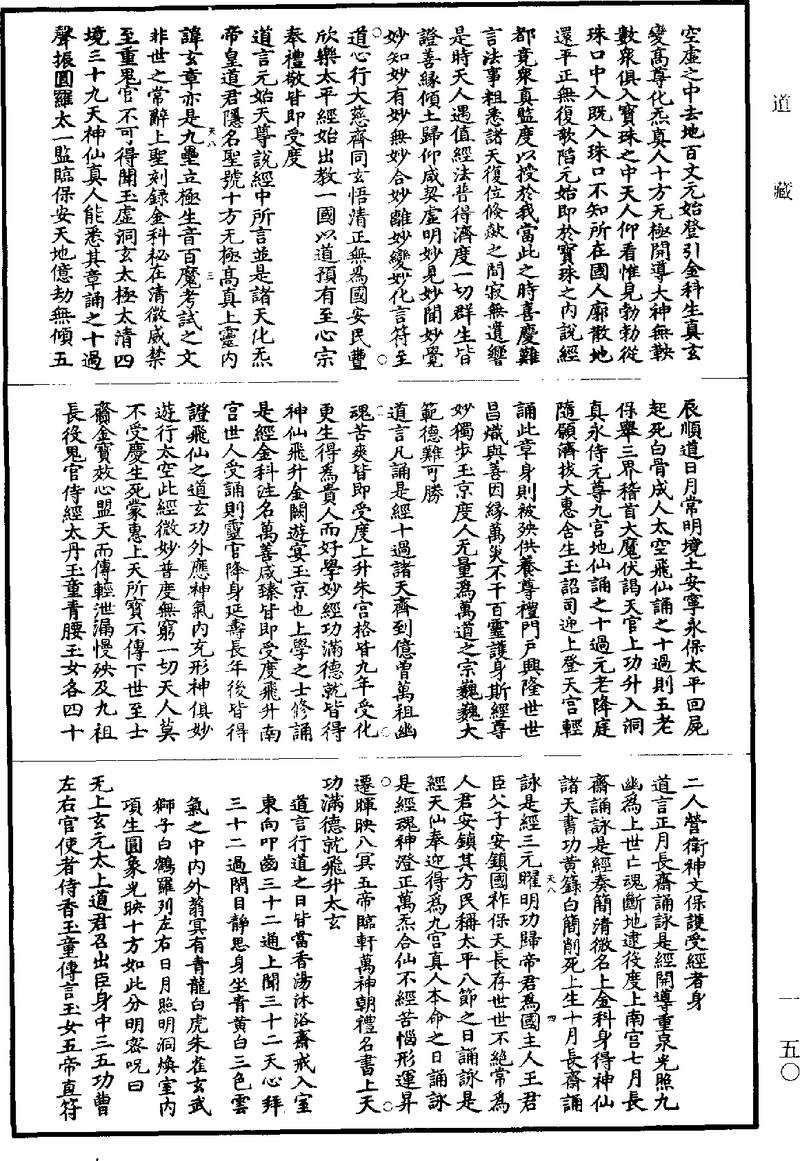 道藏
空虛之中去地百丈元始登引金科生真玄
變高尊化炁真人十方无極開導大神無鞅
數衆俱入寶珠之中天人仰看惟見勃勃從
珠口中入旣入珠口不知所在國人廓散地
還平正無復欹陷元始即於寶珠之內說經
都竟衆真監度以授於我當此之時喜慶難
言法事粗悉諸天復位倏歘之間寂無遺響
是時天人遇值經法普得濟度一切群生皆
證善緣傾土歸仰咸契虛明妙見妙聞妙覺
妙知妙有妙無妙合妙離妙變妙化言符至
道心行大慈齊同玄悟清正無爲國安民豐
欣樂太平經始出教一國以道預有至心宗
奉禮敬皆即受度
道言元始天尊說經中所言並是諸天化炁
帝皇道君隱名聖號十方无極高真上靈內
諱玄章亦是九壘立極生音百魔考試之文
天八
三
非世之常辭上聖刻錄金科秘在清微威禁
至重鬼官不可得聞玉虛洞玄太極太清四
境三十九天神仙真人能悉其章誦之十過
聲振圓羅太一監臨保安天地億劫無傾五
辰順道日月常明境土安寧永保太平回屍
起死白骨成人太空飛仙誦之十過則五老
保舉三界稽首大魔伏謁天官上功升入洞
真永侍元尊九宮地仙誦之十過元老降庭
隨願濟拔大惠含生玉詔司迎上登天宮輕
誦此章身則被殃供養尊禮門戶興隆世世
昌熾與善因緣萬災不干百靈護身斯經尊
妙獨步玉京度人无量爲萬道之宗巍巍大
範德難可勝
道言凡誦是經十過諸天齊到億曾萬祖幽
魂苦爽皆即受度上升朱宮格皆九年受化
更生得爲貴人而好學妙經功滿德就皆得
神仙飛升金闕遊宴玉京也上學之士修誦
是經金科注名萬善咸臻皆即受度飛升南
宮世人受誦則靈官降身延壽長年後皆得
證飛仙之道玄功外應神氣內充形神俱妙
遊行太空此經微妙普度無窮一切天人莫
不受慶生死蒙惠上天所寶不傳下世至士
齎金寶效心盟天而傳輕泄漏慢殃及九祖
長役鬼官侍經太丹玉童青腰玉女各四十
二人營衛神文保護受經者身
道言正月長齋誦詠是經開導重泉光照九
幽爲上世亡魂斷地逮役度上南宮七月長
齋誦詠是經奏簡清微名上金科身得神仙
諸天書功黃籙白簡削死上生十月長齋誦
天八
四
詠是經三元曜明功歸帝君爲國主人王君
臣父子安鎮國祚保天長存世世不絕常爲
人君安鎮其方民稱太平八節之日誦詠是
經天仙奉迎得爲九宮真人本命之日誦詠
是經魂神澄正萬炁合仙不經苦惱形運昇
遷暉映八冥五帝臨軒萬神朝禮名書上天
功滿德就飛升太玄
道言行道之日皆當香湯沐浴齋戒入室
東向叩齒三十二通上聞三十二天心拜
三十二過閉目靜思身坐青黃白三色雲
氣之中內外蓊冥有青龍白虎朱雀玄武
獅子白鶴羅列左右日月照明洞煥室內
項生圓象光映十方如此分明密呪曰
无上玄元太上道君召出臣身中三五功曹
左右官使者侍香玉童傳言玉女五帝直符
一五〇